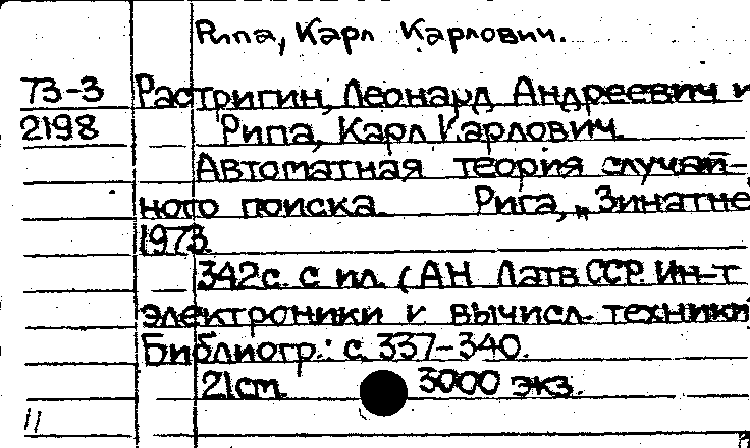 Рипа, Карл Карлович.
73-3 Растригин, Леонард Андреевич и
2198 Рипа, Карл Карлович.
Автоматная теория случай-
ного поиска. Рига, „Зинатне
1973.
342с. с ил. (АН Латв ССР. Ин-т
электроники и вычисл. техники
Библиогр.: с. 337-340.
21см. 3000 экз.
11